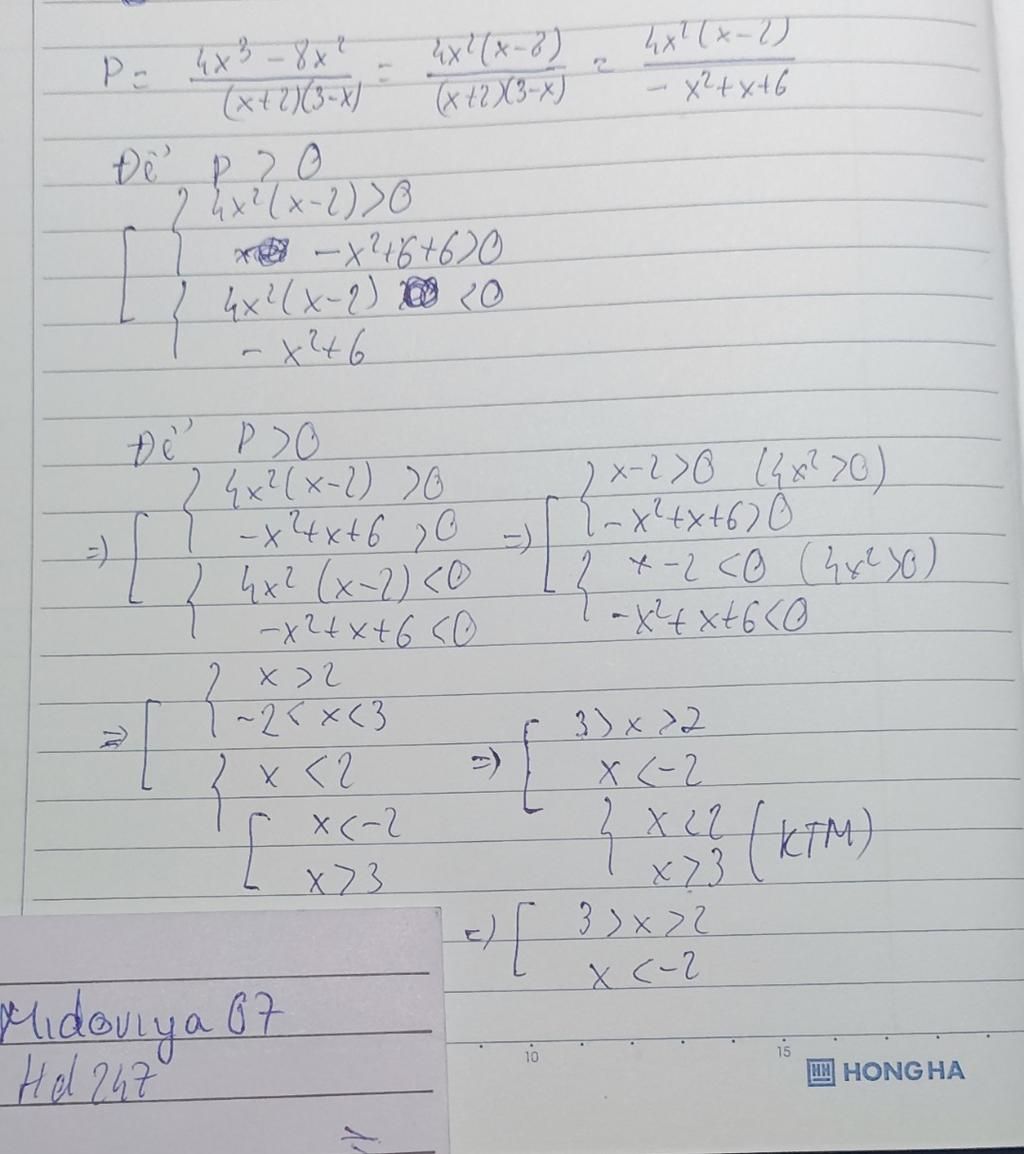 P = 4x³ - 8x² / (x+2)(3-x) = 4x²(x-8) / (x+2)(3-x) = 4x²(x-2) / - x²+x+6
Để P > 0
[ { 4x²(x-2)>0
-x²+6+6>0
{ 4x²(x-2) <0
- x²+6
Để P>0
=) [ { 4x²(x-2) >0 =) [ { x-2>0 (4x²>0)
-x²+x+6 >0 -x²+x+6>0
{ 4x² (x-2)<0 { x-2<0 (4x²>0)
-x²+x+6<0 -x²+x+6<0
=) [ { x>2
-2< x<3 =) [ 3>x>2
{ x <2 x <-2
[ x<-2 { x<2 (KTM)
x>3 x>3
=) [ 3>x>2
x <-2
Midoviya 07
Hd 247
10 15
HONG HA